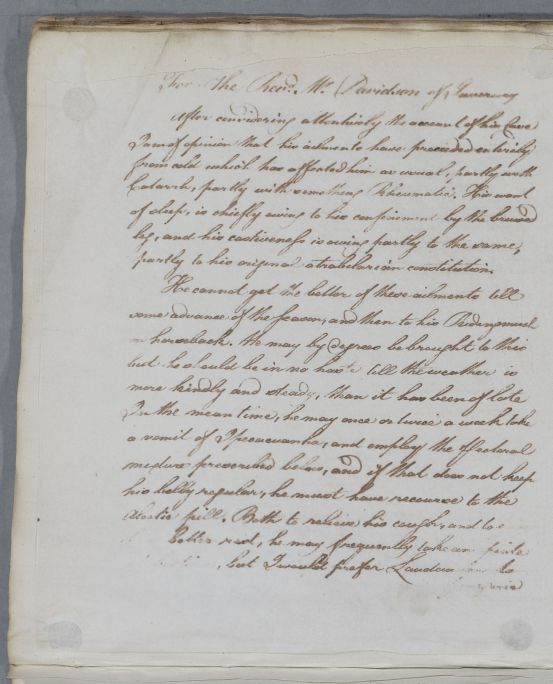 For the Revd. Mr. Davidson of Inveraray
After considering attentively the account of his Case
I am of opinion that his ailments have proceeded entirely
from cold which has affected him as usual, partly with
Catarrh, partly with something Rheumatic. His want
of sleep, is chiefly owing to his confinement by the bruised
leg, and his costiveness is owing partly to the same,
partly to his original atrabilarian constitution
He cannot get the better of these ailments till
some advance of the season, and then to his Riding much
on horseback. He may by degrees be brought to this
but he should be in no haste till the weather is
more kindly and steady, than it has been of late
In the mean time, he may once or twice a week take
a vomit of Ipecacuanha, and employ the Pectoral
mixture prescribed below, and if that does not keep
his belly regular, he must have recourse to the
Aloetic pill. Both to relieve his cough, and to
better rest, he may frequently take an
but I would prefer